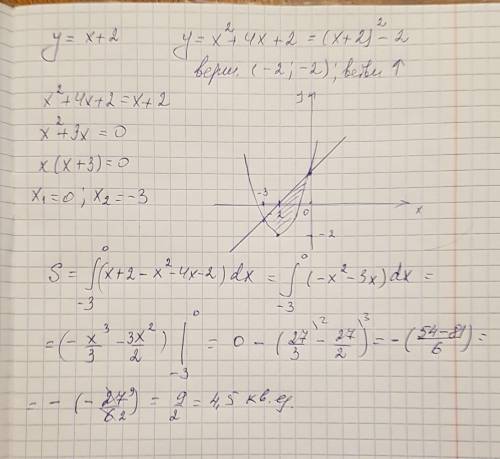 y = x+2    y = x²+4x+2 = (x+2)²-2
верш. (-2; -2); ветви ↑
x²+4x+2 = x+2
x²+3x = 0
x(x+3) = 0
x₁=0; x₂=-3
y
-3 -2 0 x
-2
S = ∫₋₃⁰ (x+2-x²-4x-2) dx = ∫₋₃⁰ (-x²-3x) dx =
= (-x³/3 - 3x²/2) |₋₃⁰ = 0 - (27/3 \² - 27/2 \³) = -((54-81)/6) =
= - (-27⁹/6₂) = 9/2 = 4,5 кв.ед.